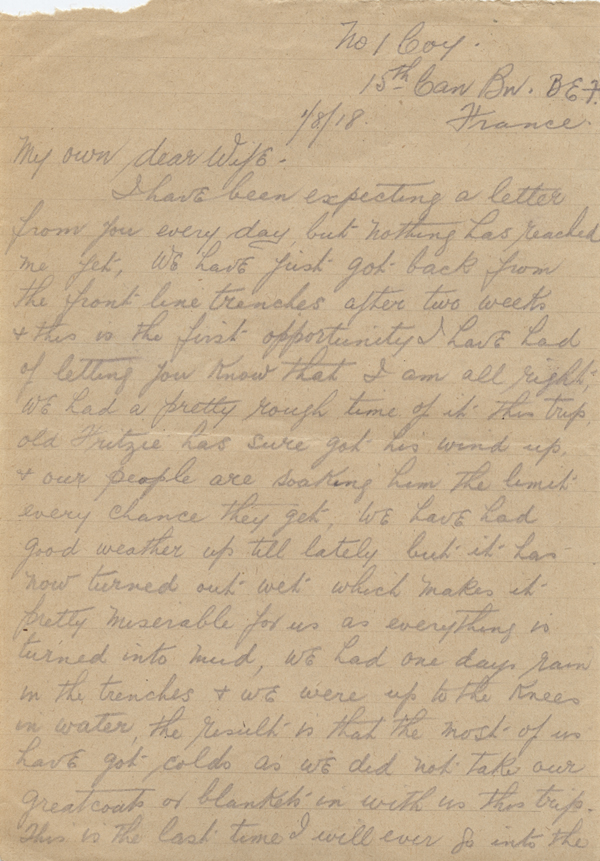 No 1 Coy.
15th Can Bn. BEF.
1/8/18. France.
My own dear Wife.
I have been expecting a letter
from you every day, but nothing has reached
me yet, We have just got back from
the front line trenches after two weeks
+ this is the first opportunity I have had
of letting you know that I am all right.
We had a pretty rough time of it this trip
old Fritzie has sure got his wind up,
+ our people are soaking him the limit
every chance they get, We have had
good weather up till lately but it has
now turned out wet which makes it
pretty miserable for us as everything is
turned into mud, we had one days rain
in the trenches + we were up to the knees
in water, the result is that the most of us
have got colds as we did not take our
greatcoats or blankets in with us this trip.
This is the last time I will ever go into the